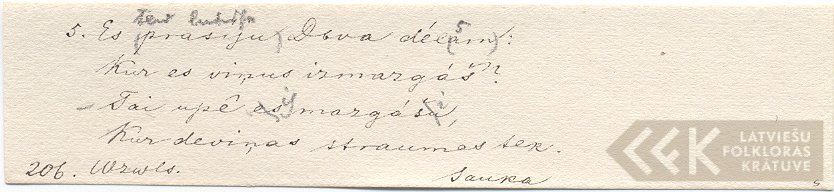 tew luhdſu
5. Es prasiju Dēva dēlam: (5)
Kur es viņus izmargāš'?
– Tai upē es izmargāšu,
Kur deviņas straumas tek.
206. Wzwls. Sauka
LATVIEŠU
FOLKLORAS
KRĀTUVE